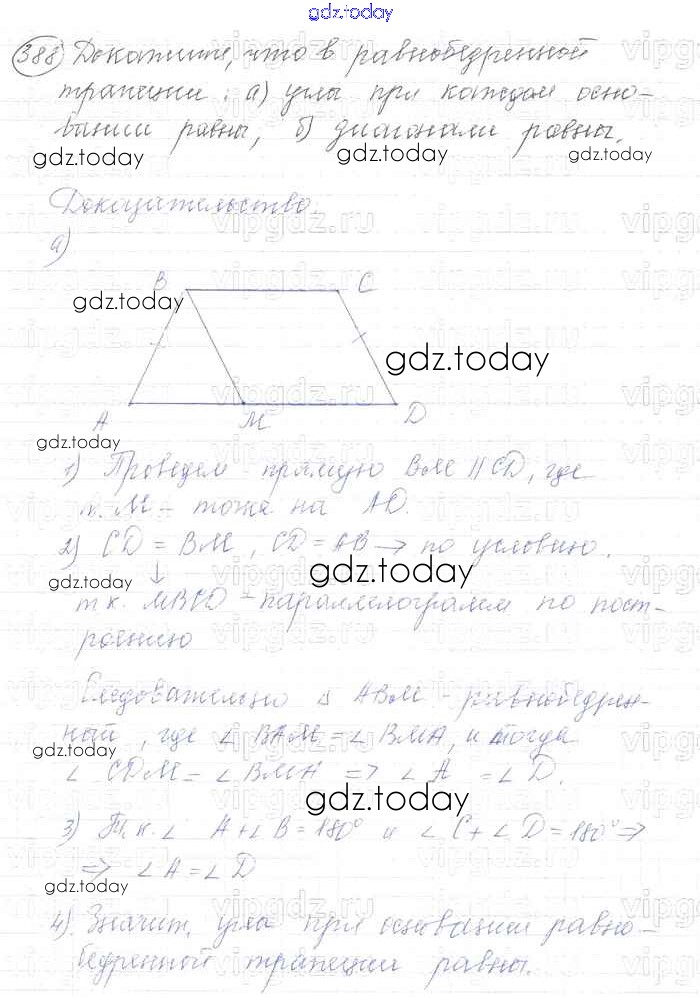 gdz.today
388 Докажите, что в равнобедренной
трапеции: а) углы при каждом осно-
вании равны, б) диагонали равны.
gdz.today gdz.today gdz.today
Доказательство
а)
B C
gdz.today
gdz.today
A M D
gdz.today
1) Проведем прямую BM || CD, где
т. M - тоже на AD.
2) CD = BM, CD = AB → по условию.
gdz.today gdz.today
т.к. MBCD - параллелограмм по пост-
роению
Следовательно △ ABM - равнобедрен-
ный, где ∠ BAM = ∠ BMA, и тогда
gdz.today
∠ CDM = ∠ BMA => ∠ A = ∠ D.
gdz.today
3) Т.к. ∠ A + ∠ B = 180° и ∠ C + ∠ D = 180° =>
=> ∠ A = ∠ D
gdz.today
4) Значит, углы при основании равно-
бедренной трапеции равны.
gdz.today